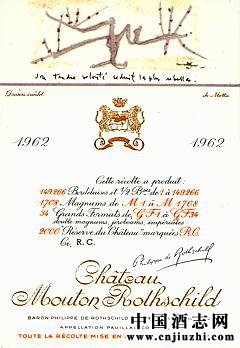 Sa tendre volonté séduit la plus rebelle.
Dessin inédit de Matta
1962 1962
Cette récolte a produit:
149.266 Bordelaises et ½ Bses de 1 à 149.266
1708 Magnums de M 1 à M 1708
34 Grands Formats de GF1 à GF34
double magnums, jéroboams, impériales
2000 "Réserve du Château" marquées R.C.
Ce, R.C.
Philippe de Rothschild
Château
Mouton Rothschild
BARON PHILIPPE DE ROTHSCHILD
APPELLATION PAUILLAC
TOUTE LA RÉCOLTE MISE EN
中国酒志网
www.cnjiuzhi.com